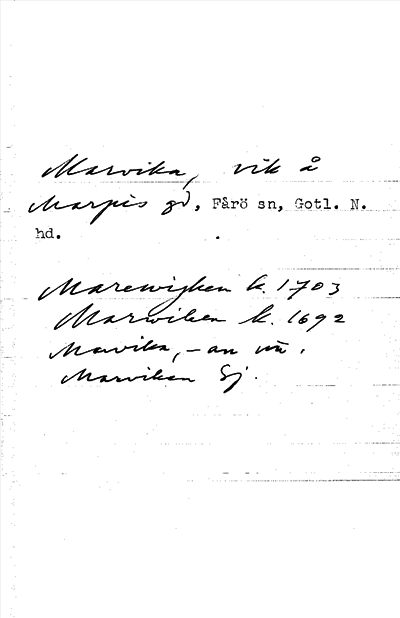 Marvika, vik å
Marpis gd, Fårö sn, Gotl. N.
hd.
Marewijken k. 1703
Marwiken k. 1692
Mavika, -an
Marviken Sj.